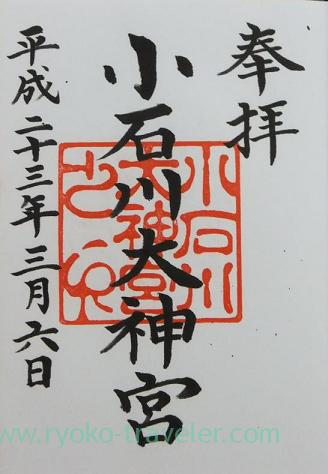 奉拝
小石川大神宮
平成二十三年三月六日
小石川
大神宮
www.ryoko-traveler.com